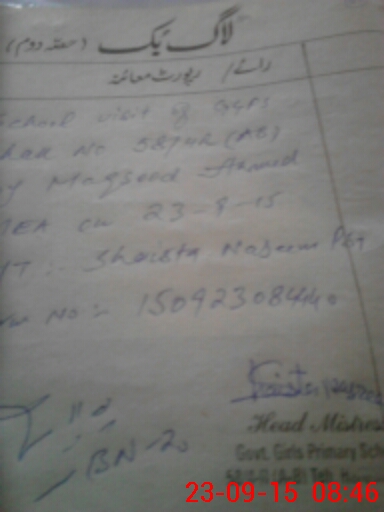 لاگ بک (حصہ دوم)
رائے / رپورٹ معائنہ
School visit of GGPS
Chak No 587GB (AB)
by Maqsood Ahmed
MEA on 23-9-15
HT :- Shaista Nazeem PST
No :- 150923084440
BN-20
Head Mistress
Govt. Girls Primary Sch
23-09-15 08:46